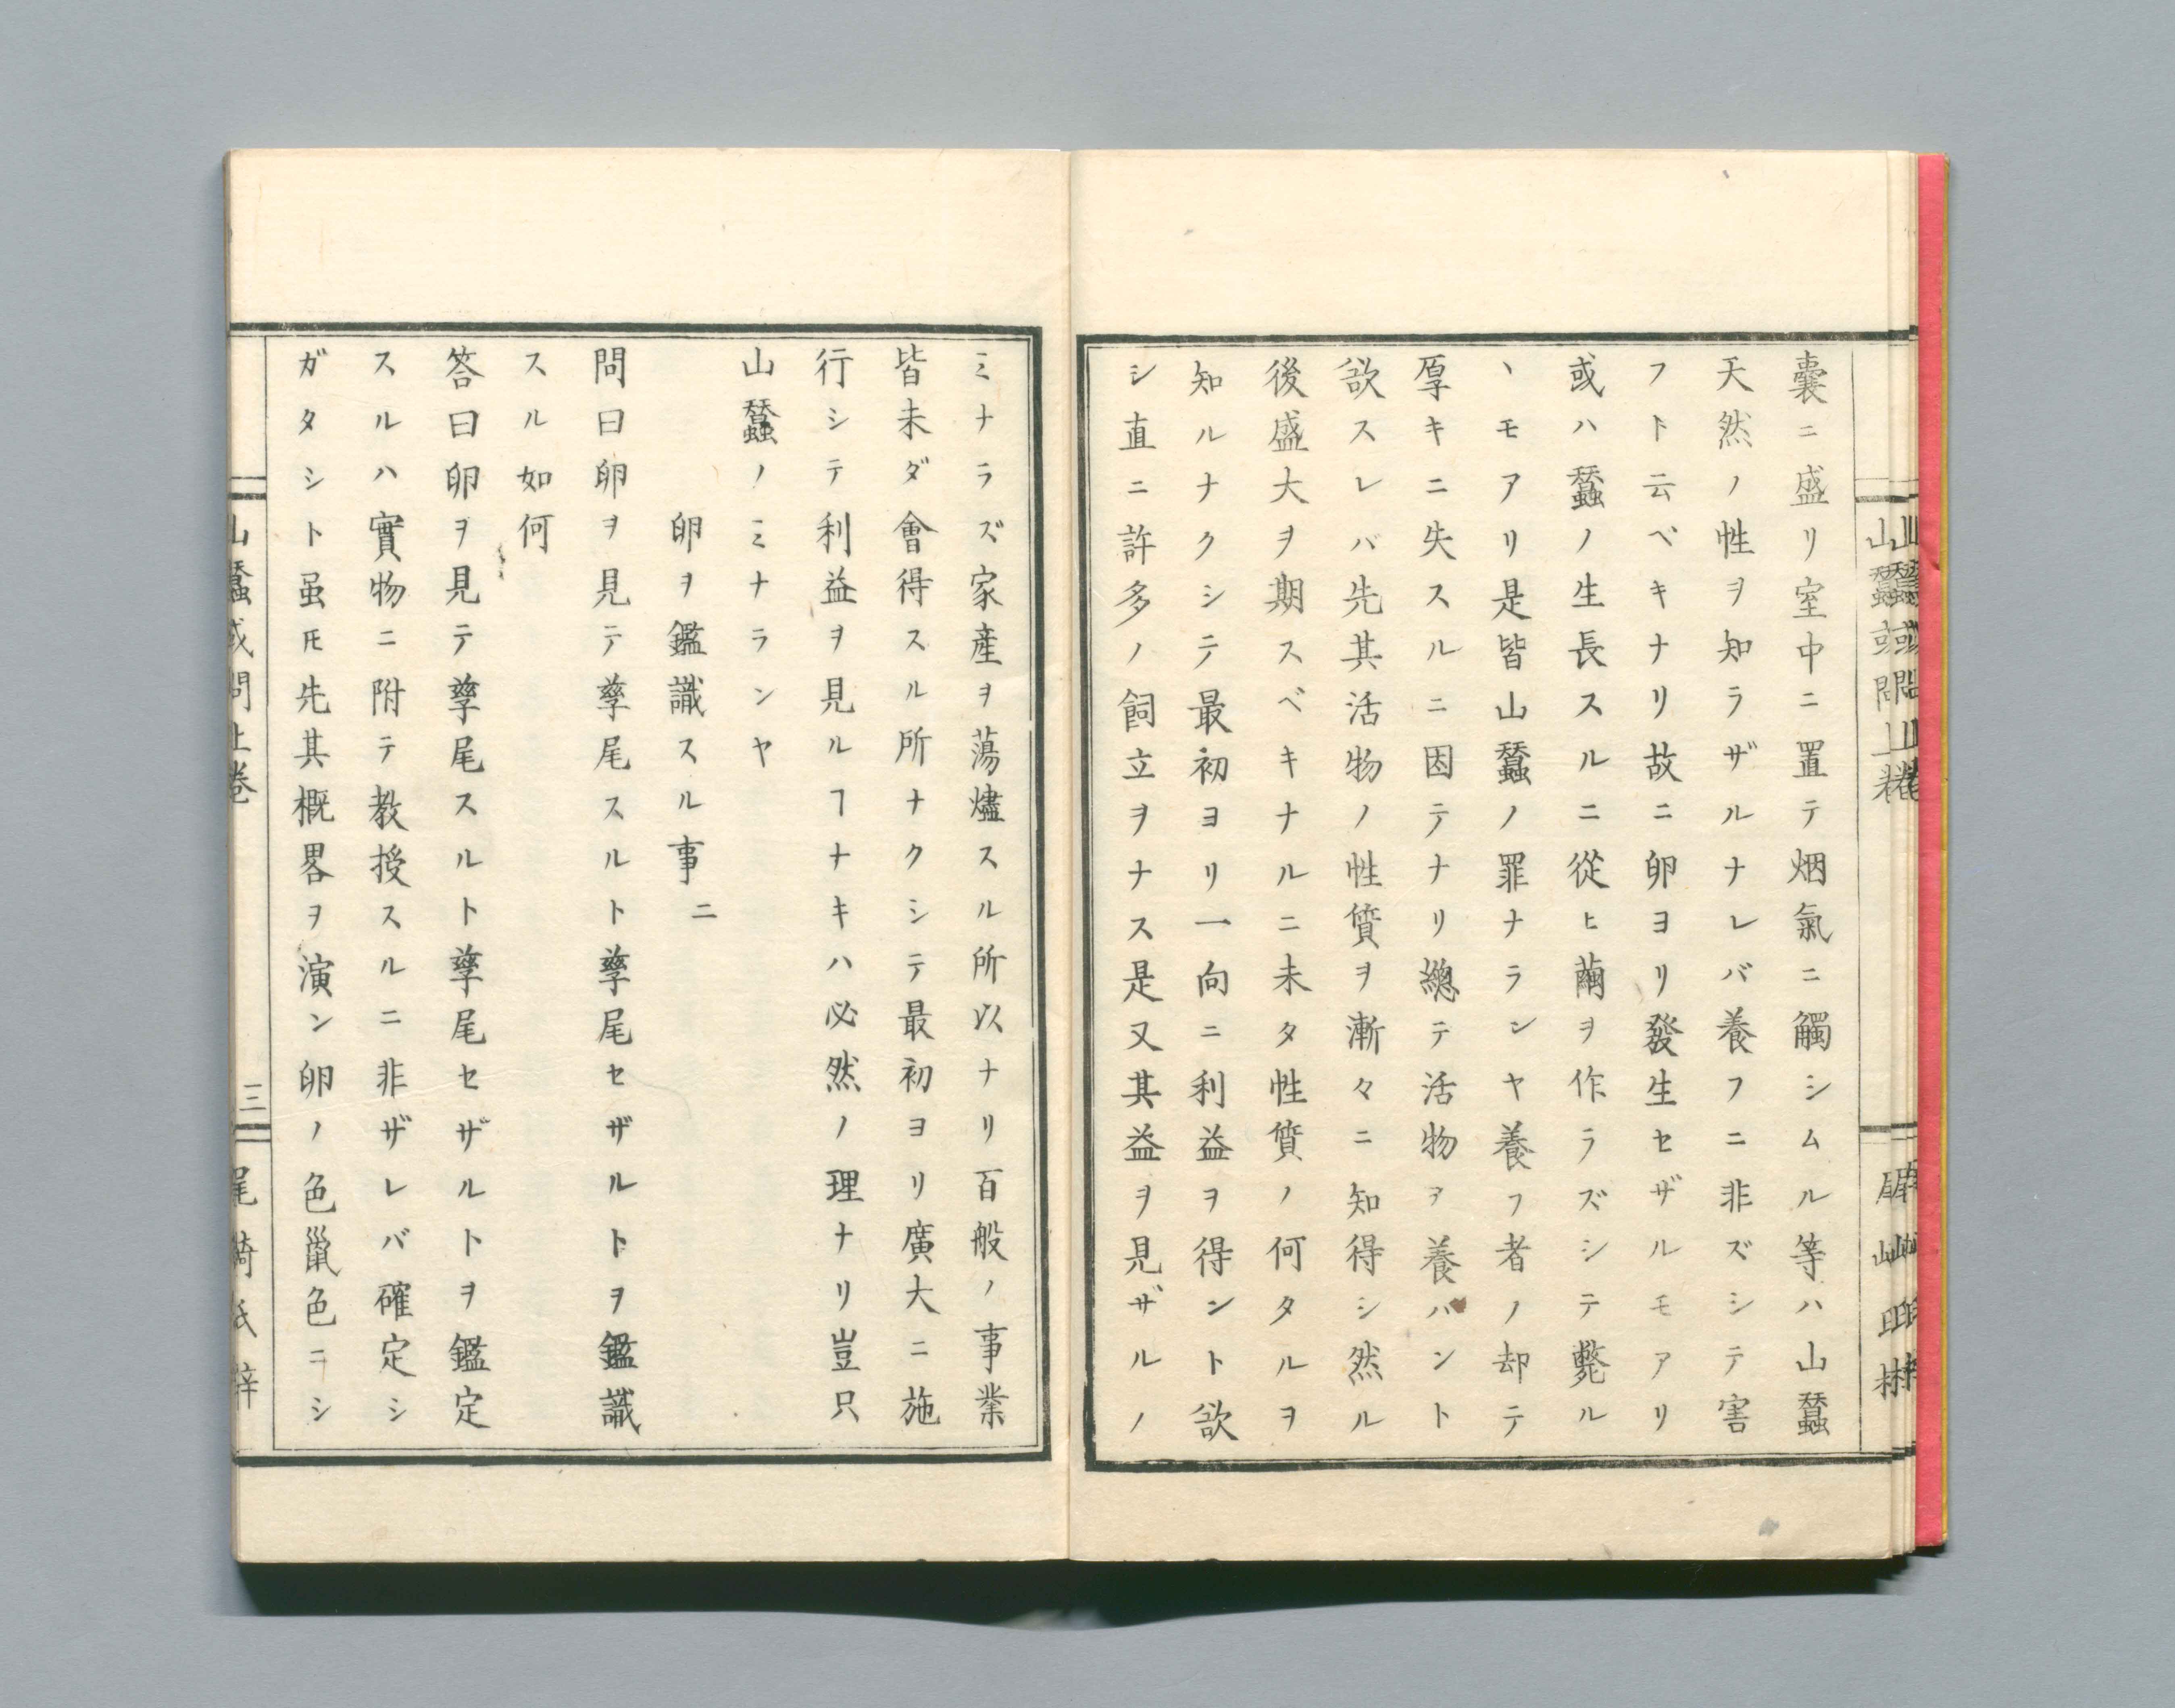 囊ニ盛リ室中ニ置テ烟氣ニ觸シムル等ハ山蠶
天然ノ性ヲ知ラザルナレバ養フニ非ズシテ害
フト云ベキナリ故ニ卵ヨリ發生セザルモアリ
或ハ蠶ノ生長スルニ從ヒ繭ヲ作ラズシテ斃ル
ヽモアリ是皆山蠶ノ罪ナランヤ養フ者ノ却テ
厚キニ失スルニ因テナリ總テ活物ヲ養ハント
欲スレバ先其活物ノ性質ヲ漸々ニ知得シ然ル
後盛大ヲ期スベキナルニ未タ性質ノ何タルヲ
知ルナクシテ最初ヨリ一向ニ利益ヲ得ント欲
シ直ニ許多ノ飼立ヲナス是又其益ヲ見ザルノ
ミナラズ家產ヲ蕩燼スル所以ナリ百般ノ事業
皆未ダ會得スル所ナクシテ最初ヨリ廣大ニ施
行シテ利益ヲ見ルヿナキハ必然ノ理ナリ豈只
山蠶ノミナランヤ
卵ヲ鑑識スル事 二
問曰卵ヲ見テ孳尾スルト孳尾セザルトヲ鑑識
スル如何
答曰卵ヲ見テ孳尾スルト孳尾セザルトヲ鑑定
スルハ實物ニ附テ教授スルニ非ザレバ確定シ
ガタシト虽𪜈先其概畧ヲ演ン卵ノ色鼠色ニシ
山蠶或問上卷
三
尾崎氏梓